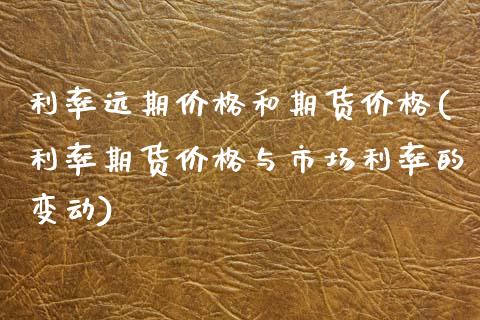 利率远期价格和期货价格(
利率期货价格与市场利率的
变动)